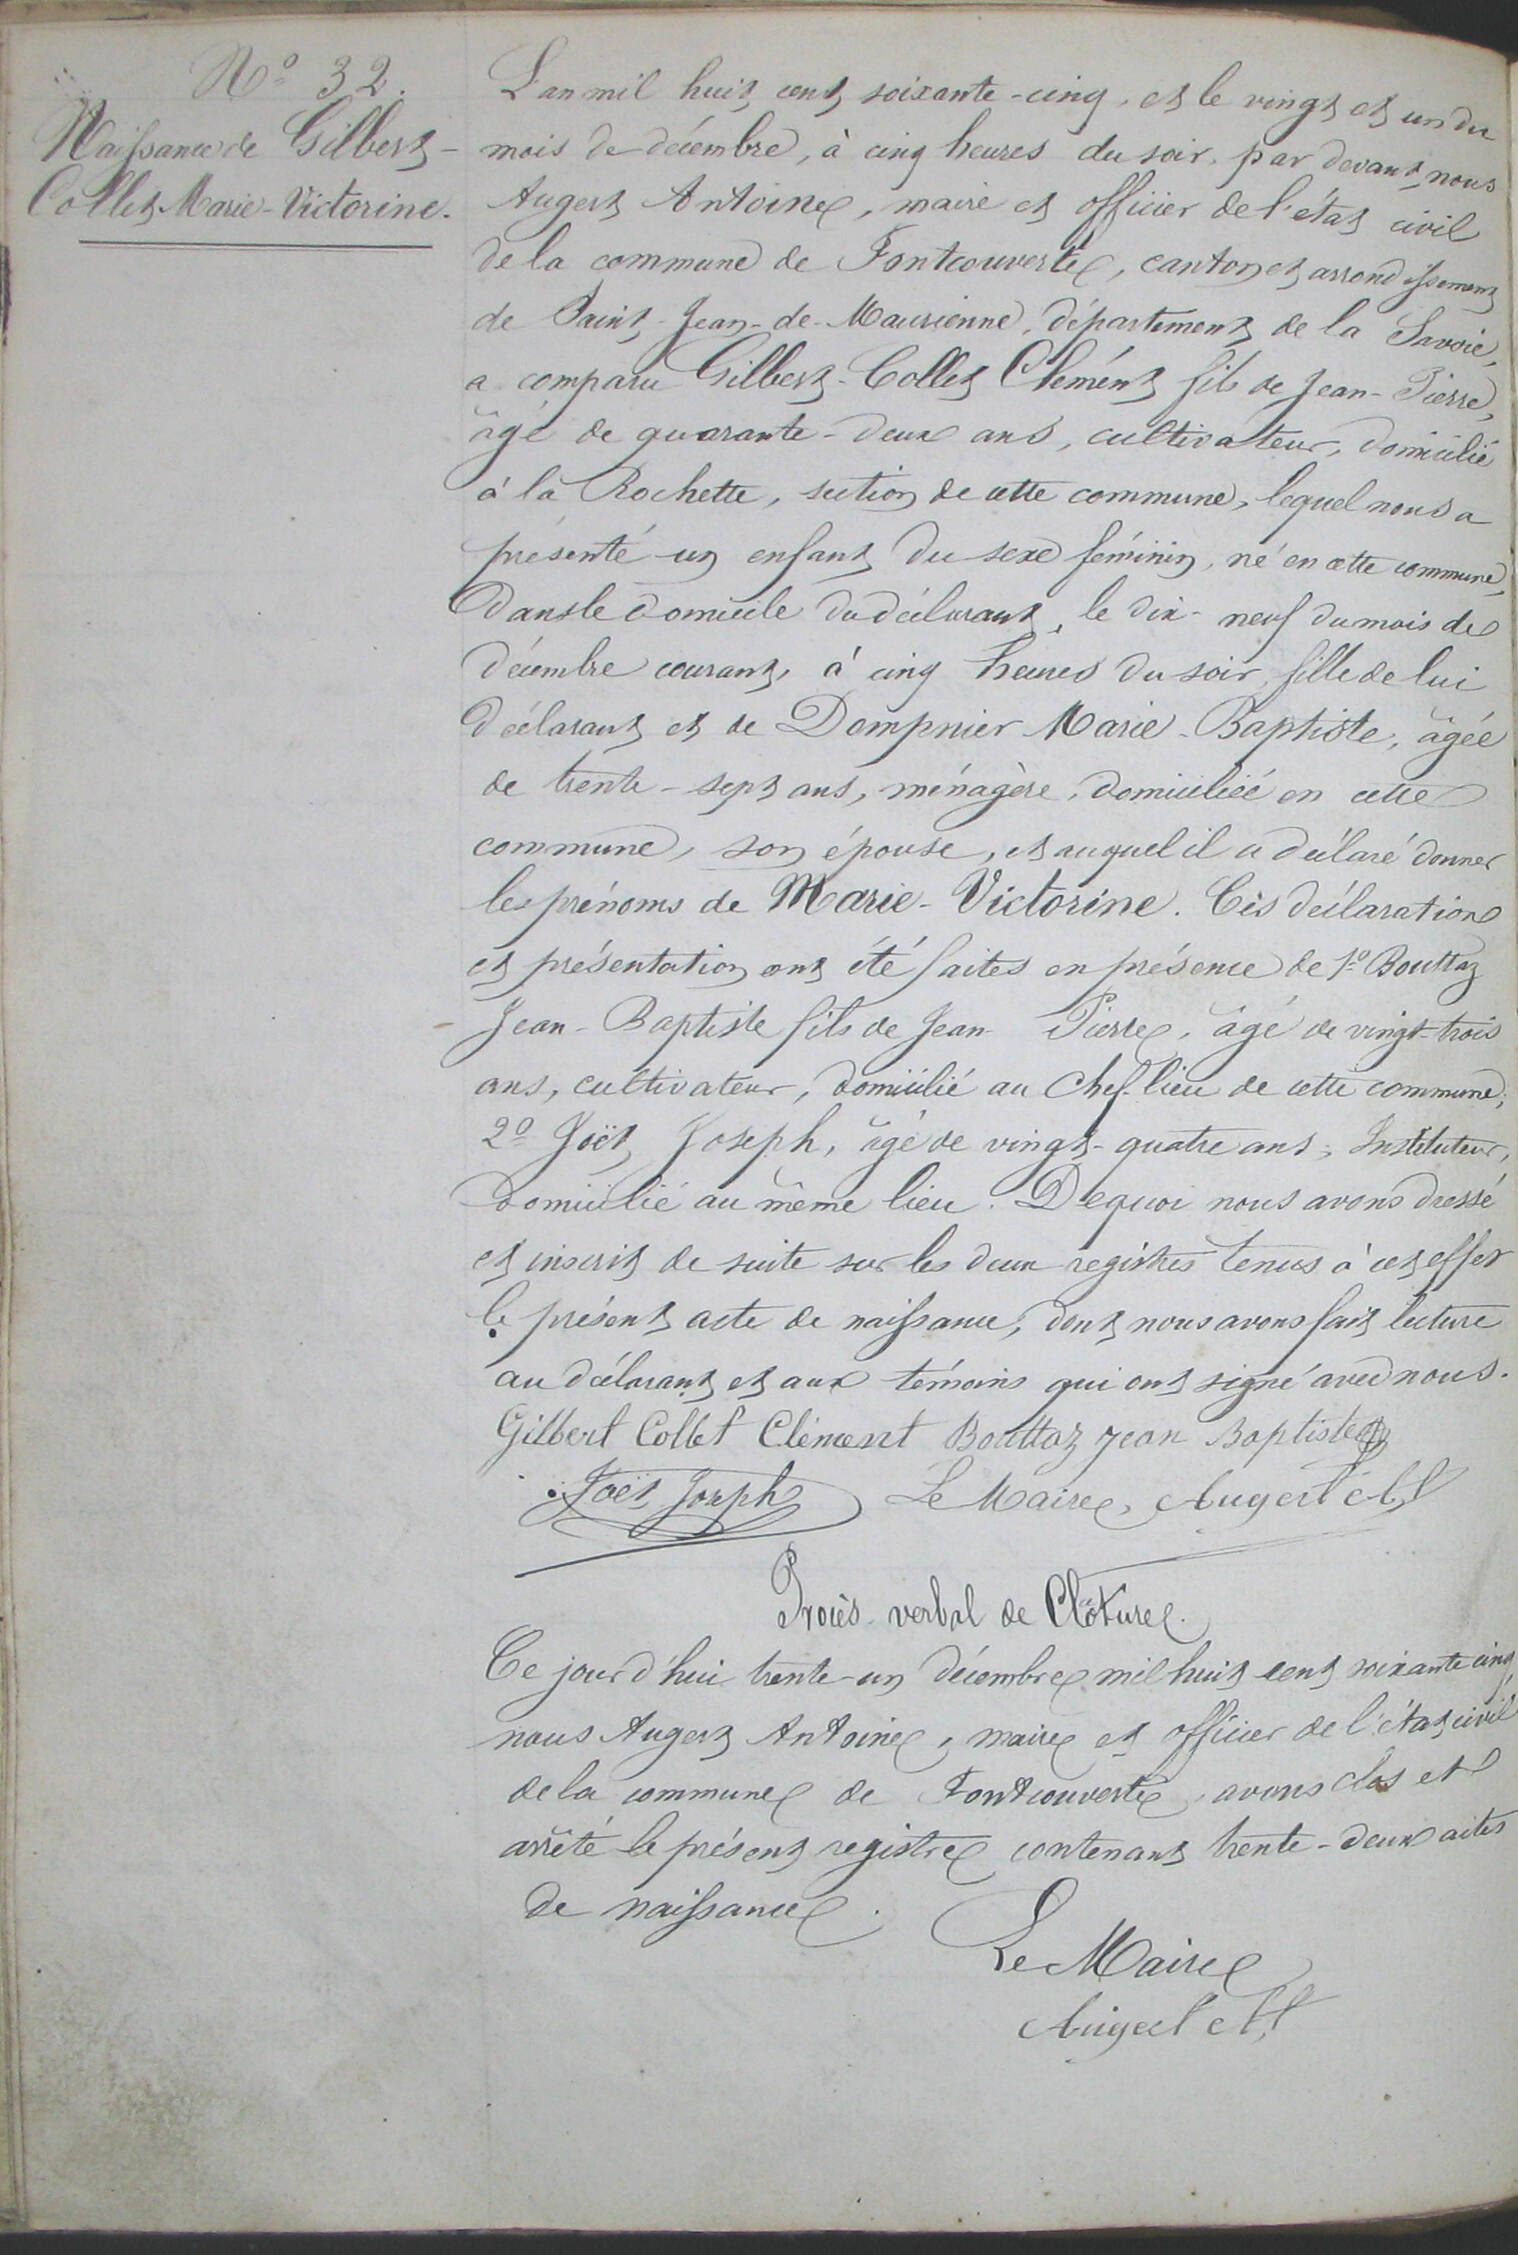 N° 32.
Naissance de Gilbert-
Collet Marie-Victorine.
L'an mil huit cent soixante-cinq, et le vingt et un du
mois de décembre, à cinq heures du soir, par devant nous
Augert Antoine, maire et officier de l'état civil
de la commune de Fontcouverte, canton et arrondissement
de Saint-Jean-de-Maurienne, département de la Savoie,
a comparu Gilbert-Collet Clément fils de Jean-Pierre,
âgé de quarante-deux ans, cultivateur, domicilié
à la Rochette, section de cette commune, lequel nous a
présenté un enfant du sexe féminin, né en cette commune,
dans le domicile du déclarant, le dix-neuf du mois de
décembre courant, à cinq heures du soir, fille de lui
déclarant et de Dompnier Marie-Baptiste, âgée
de trente-sept ans, ménagère, domiciliée en cette
commune, son épouse, et auquel il a déclaré donner
les prénoms de Marie-Victorine. Cès déclaration
et présentation ont été faites en présence de 1° Bouttaz
Jean-Baptiste fils de Jean-Pierre, âgé de vingt-trois
ans, cultivateur, domicilié au Chef-lieu de cette commune;
2° Joët Joseph, âgé de vingt-quatre ans, Instituteur,
domicilié au même lieu. De quoi nous avons dressé
et inscrit de suite sur les deux registres tenus à cet effet
le présent acte de naissance, dont nous avons fait lecture
au déclarant et aux témoins qui ont signé avec nous.
Gilbert Collet Clément Bouttaz Jean Baptiste
Joët Joseph Le Maire, Augert Ant
Procès-verbal de Clôture.
Ce jourd'hui trente-un décembre mil huit cent soixante cinq,
nous Augert Antoine, maire et officier de l'état civil
de la commune de Fontcouverte, avons clos et
arrêté le présent registre contenant trente-deux actes
de naissance.
Le Maire
Augert Ant